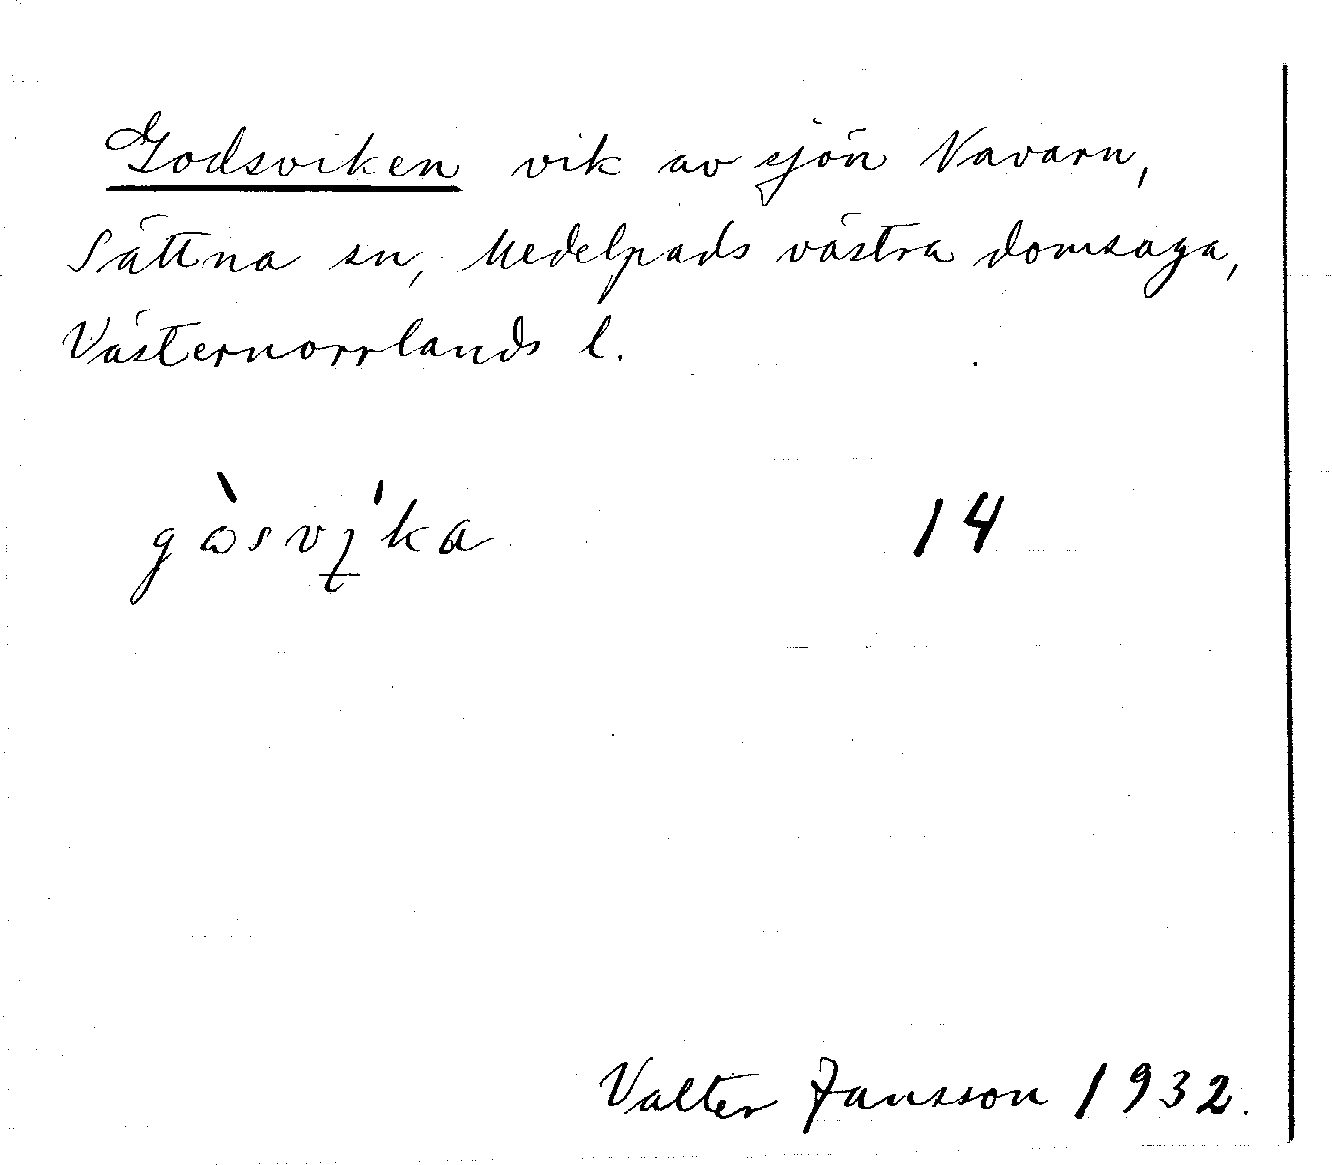 Godsviken vik av sjön Navarn,
Sättna sn, Medelpads västra domsaga,
Västernorrlands l.
14
Valter Jansson 1932.